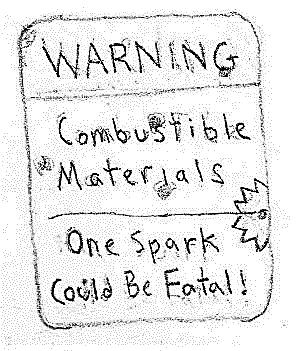 WARNING
Combustible
Materials
One Spark
Could Be Fatal!